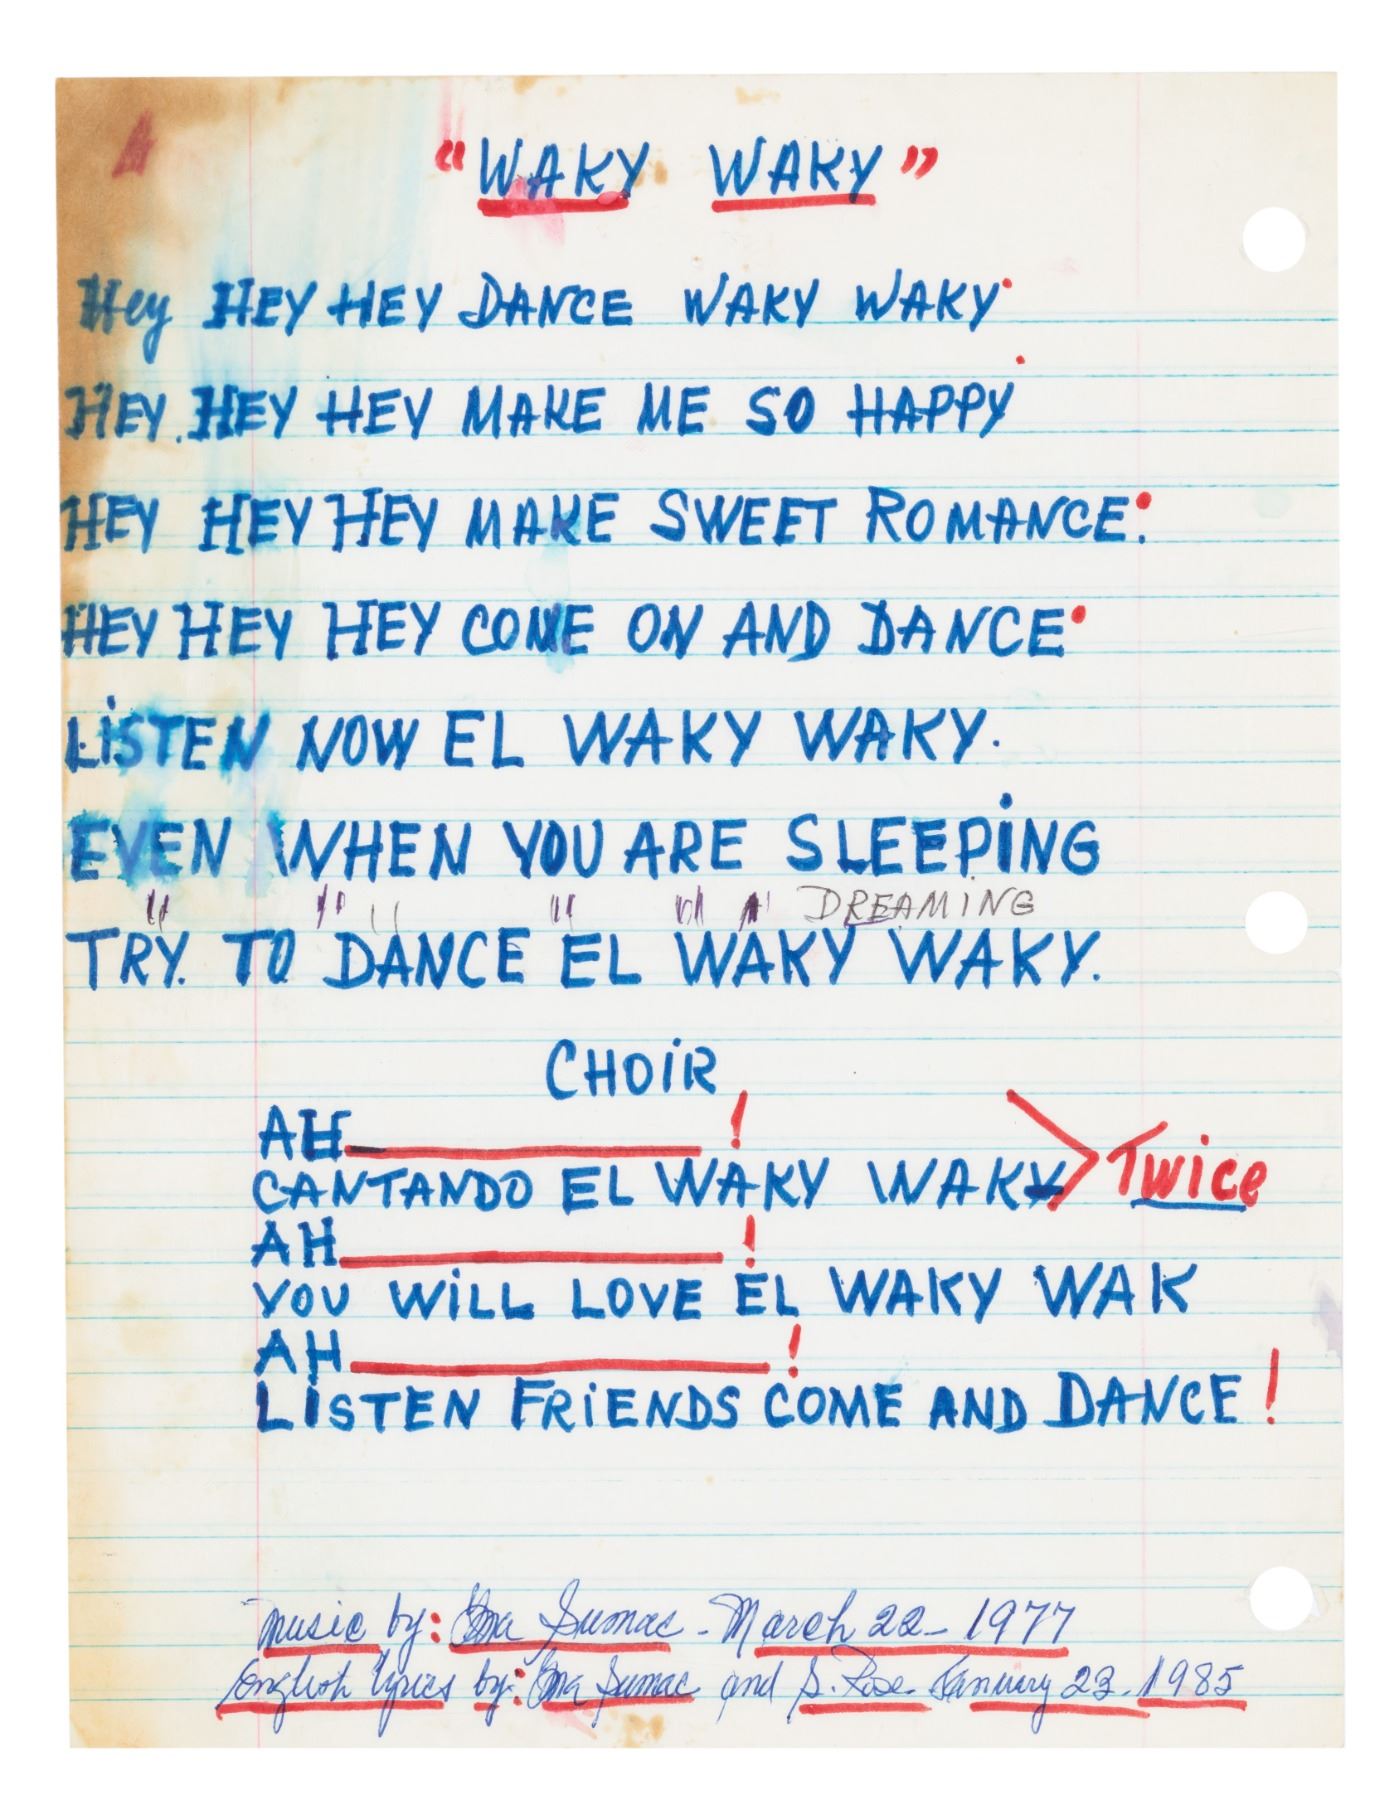 "WAKY WAKY"
Hey HEY HEY DANCE WAKY WAKY.
HEY. HEY HEY MAKE ME SO HAPPY
HEY HEY HEY MAKE SWEET ROMANCE.
HEY HEY HEY COME ON AND DANCE.
LISTEN NOW EL WAKY WAKY.
EVEN WHEN YOU ARE SLEEPING
" " " " " " DREAMING
TRY. TO DANCE EL WAKY WAKY.
CHOIR
AH______!
CANTANDO EL WAKY WAKY > Twice
AH______!
YOU WILL LOVE EL WAKY WAK
AH______!
LISTEN FRIENDS COME AND DANCE!
music by: Yma Sumac - March 22 - 1977
English lyrics by: Yma Sumac and S. Rose. January 23. 1985